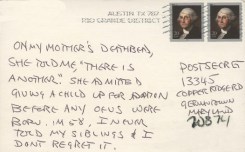 AUSTIN TX 787
RIO GRANDE DISTRICT
ON MY MOTHER'S DEATHBED,
SHE TOLD ME, "THERE IS
ANOTHER." SHE ADMITTED
GIVING A CHILD UP FOR ADOPTION
BEFORE ANY OF US WERE
BORN. I'M 58, I NEVER
TOLD MY SIBLINGS & I
DON'T REGRET IT.
POSTSECRET
13345
COPPER RIDGE RD
GERMANTOWN
MARYLAND
20874